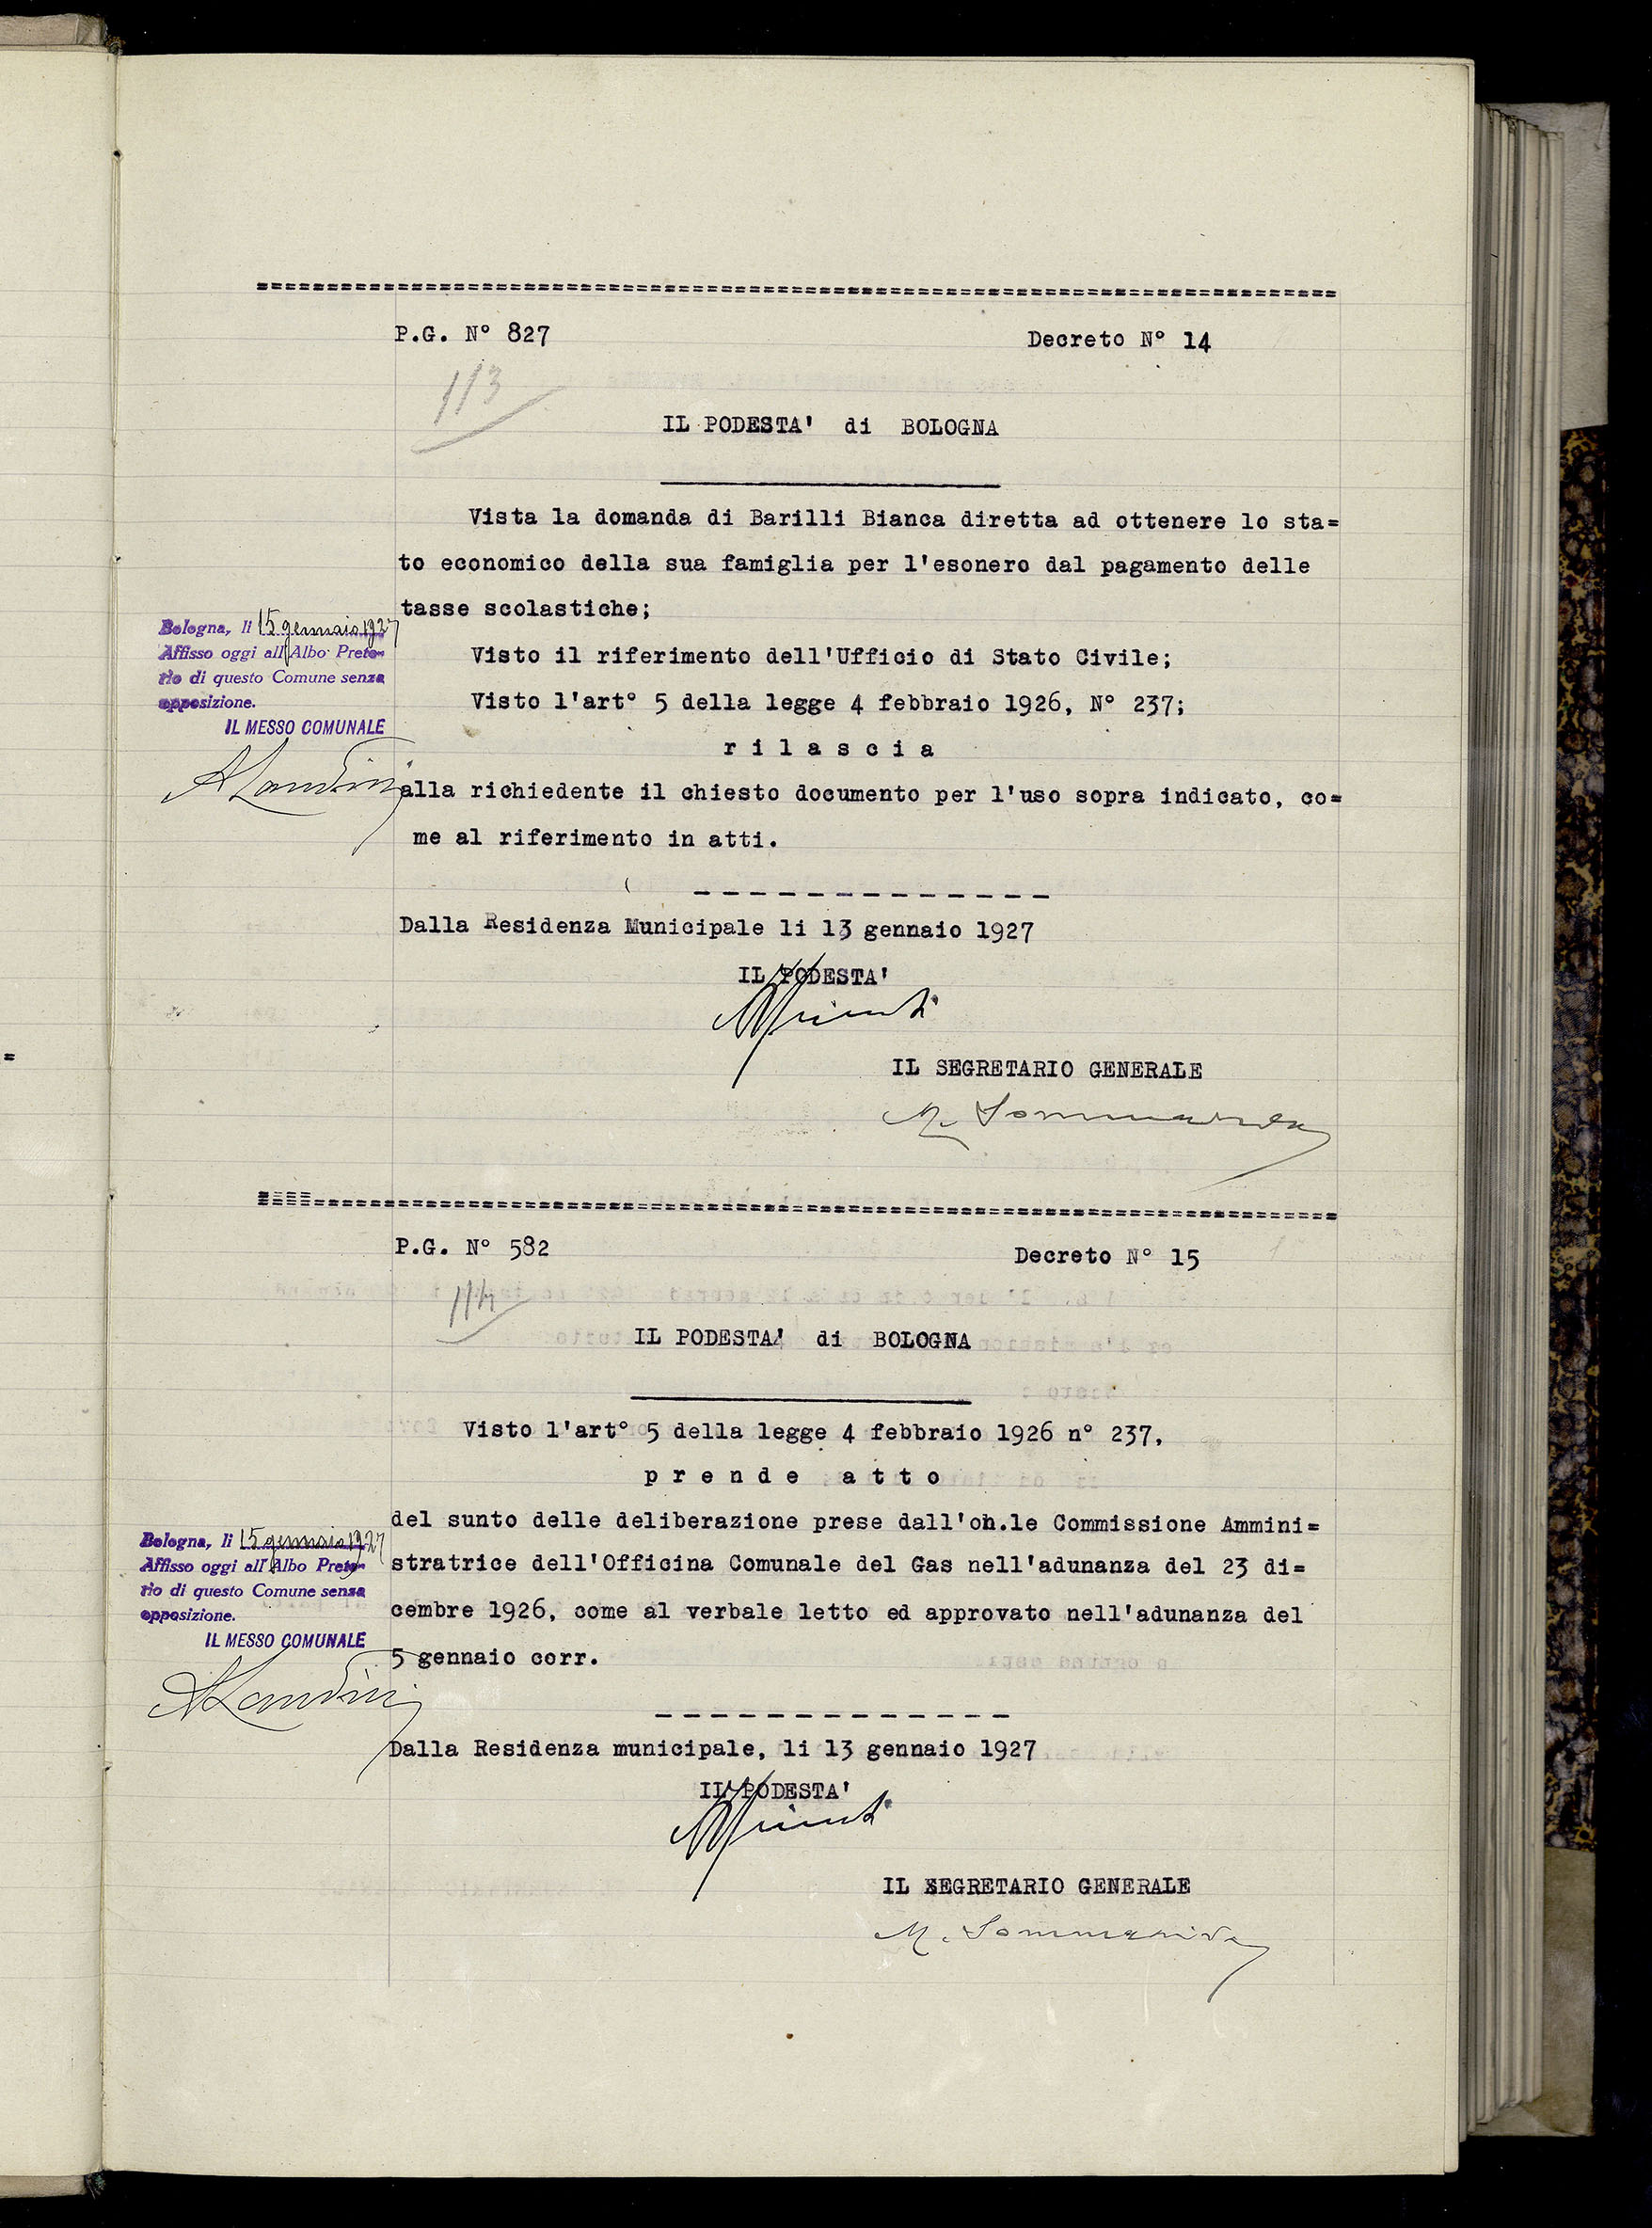 P.G. N° 827 Decreto N° 14
113
IL PODESTA' di BOLOGNA
Vista la domanda di Barilli Bianca diretta ad ottenere lo sta=
to economico della sua famiglia per l'esonero dal pagamento delle
tasse scolastiche;
Bologna, li 15 gennaio 1927
Affisso oggi all'Albo Preto-
rio di questo Comune senza
opposizione.
IL MESSO COMUNALE
ALandini
Visto il riferimento dell'Ufficio di Stato Civile;
Visto l'art° 5 della legge 4 febbraio 1926, N° 237;
r i l a s c i a
alla richiedente il chiesto documento per l'uso sopra indicato, co=
me al riferimento in atti.
Dalla Residenza Municipale li 13 gennaio 1927
IL PODESTA'
IL SEGRETARIO GENERALE
P.G. N° 582 Decreto N° 15
114
IL PODESTA' di BOLOGNA
Visto l'art° 5 della legge 4 febbraio 1926 n° 237,
p r e n d e a t t o
del sunto delle deliberazione prese dall'on.le Commissione Ammini=
stratrice dell'Officina Comunale del Gas nell'adunanza del 23 di=
cembre 1926, come al verbale letto ed approvato nell'adunanza del
5 gennaio corr.
Bologna, li 15 gennaio 1927
Affisso oggi all'Albo Preto-
rio di questo Comune senza
opposizione.
IL MESSO COMUNALE
ALandini
Dalla Residenza municipale, li 13 gennaio 1927
IL PODESTA'
IL SEGRETARIO GENERALE